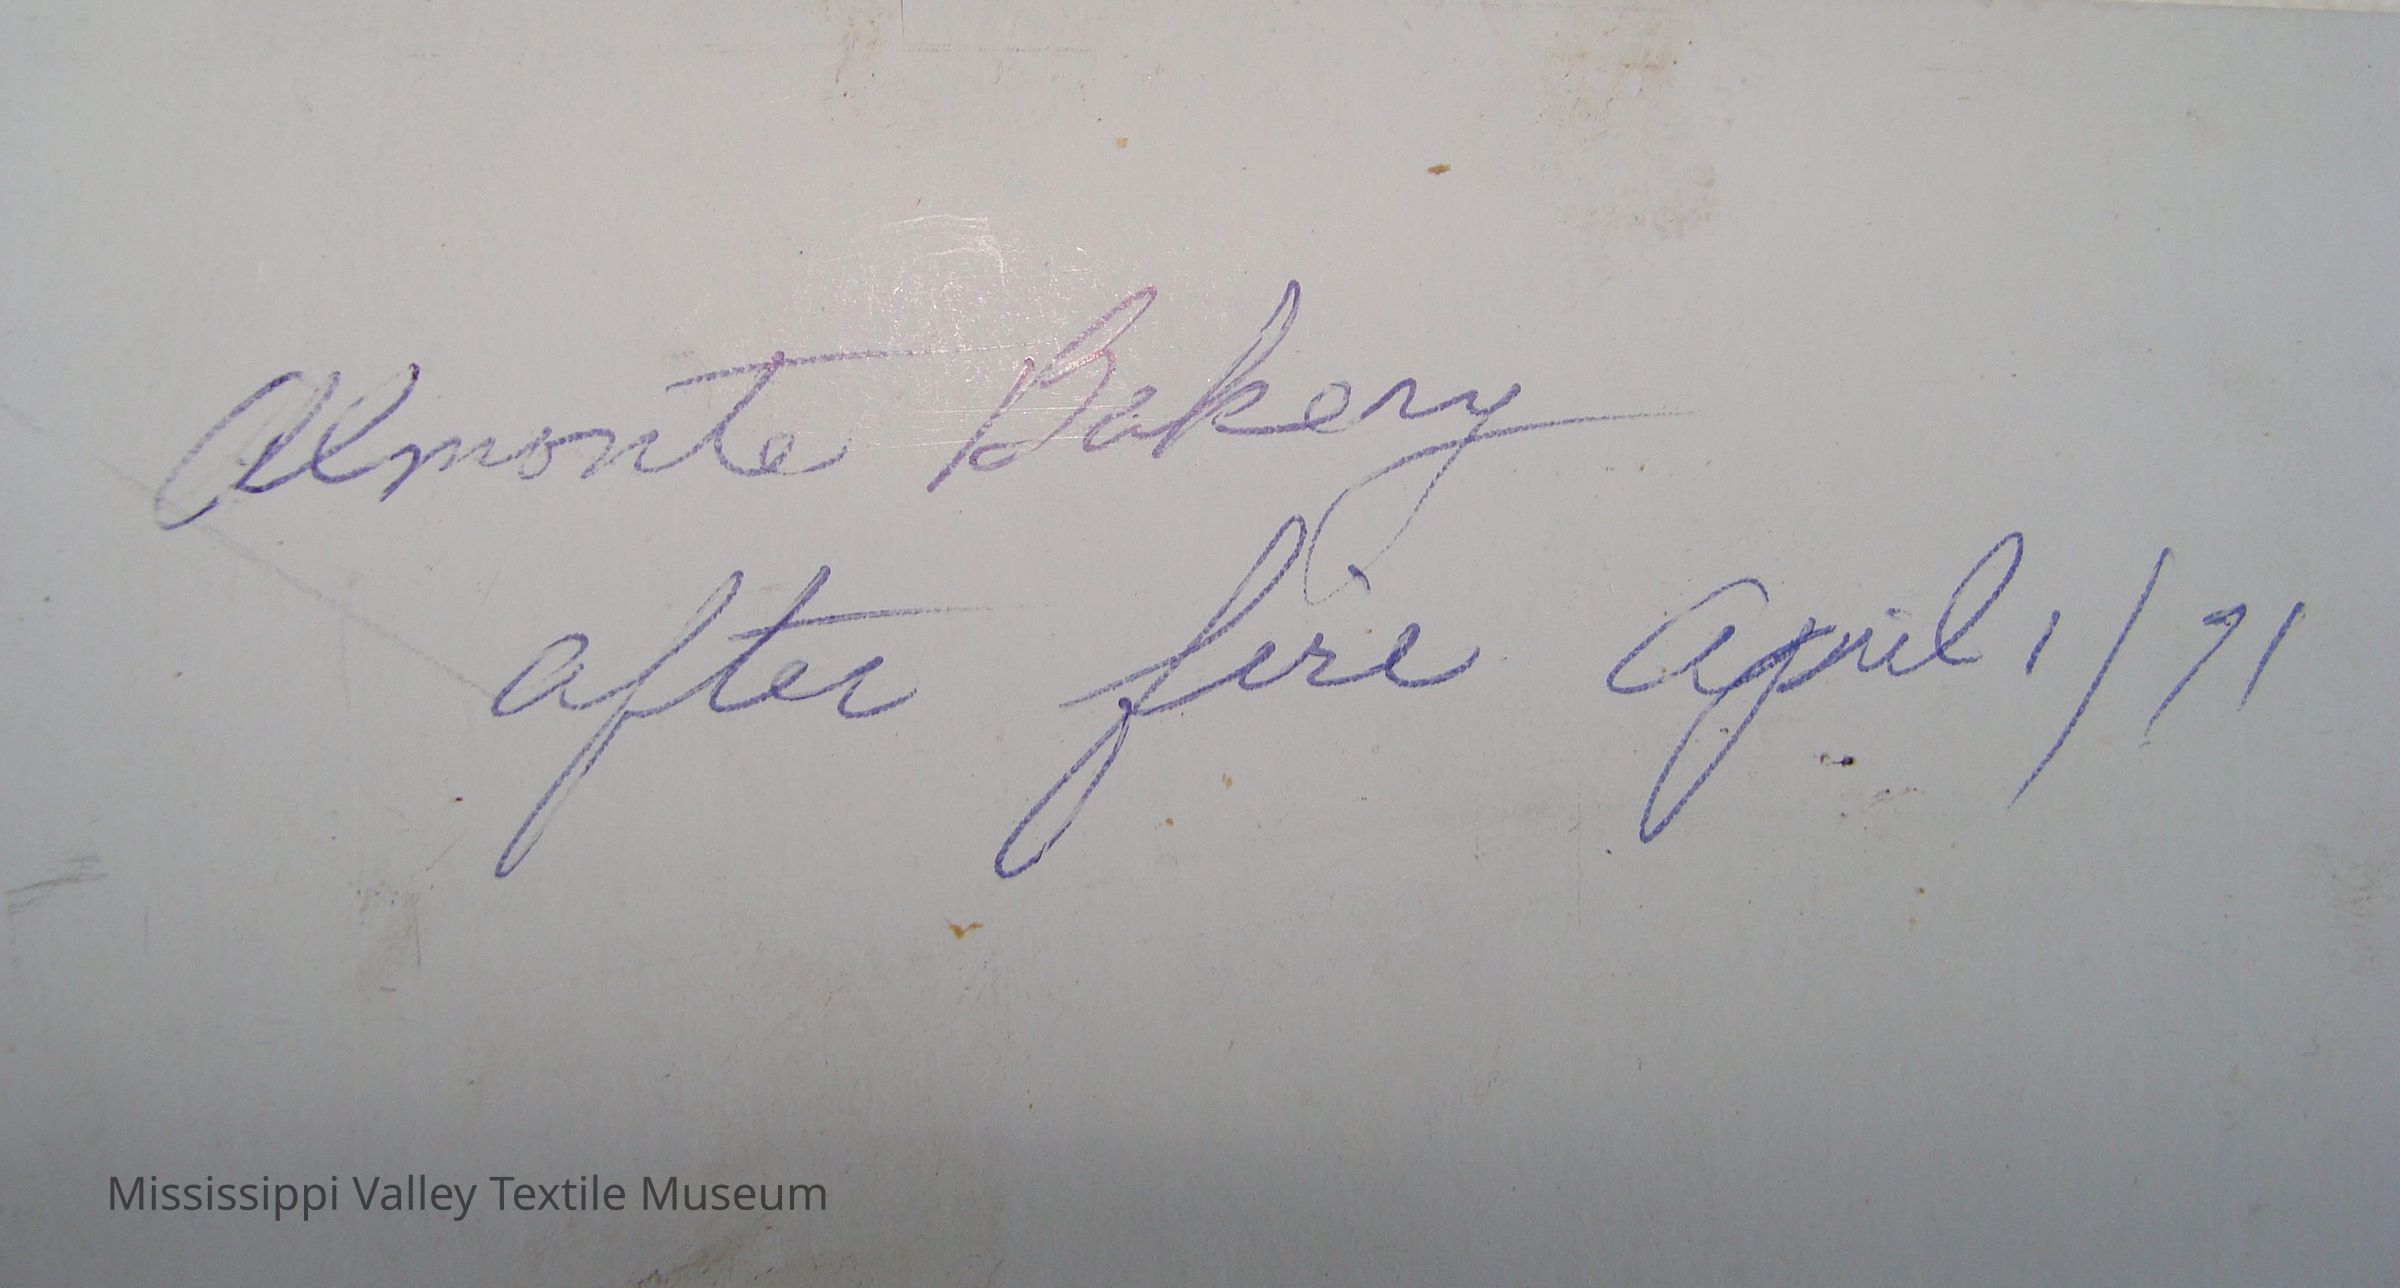 Almonte Bakery
after fire April 1/71
Mississippi Valley Textile Museum